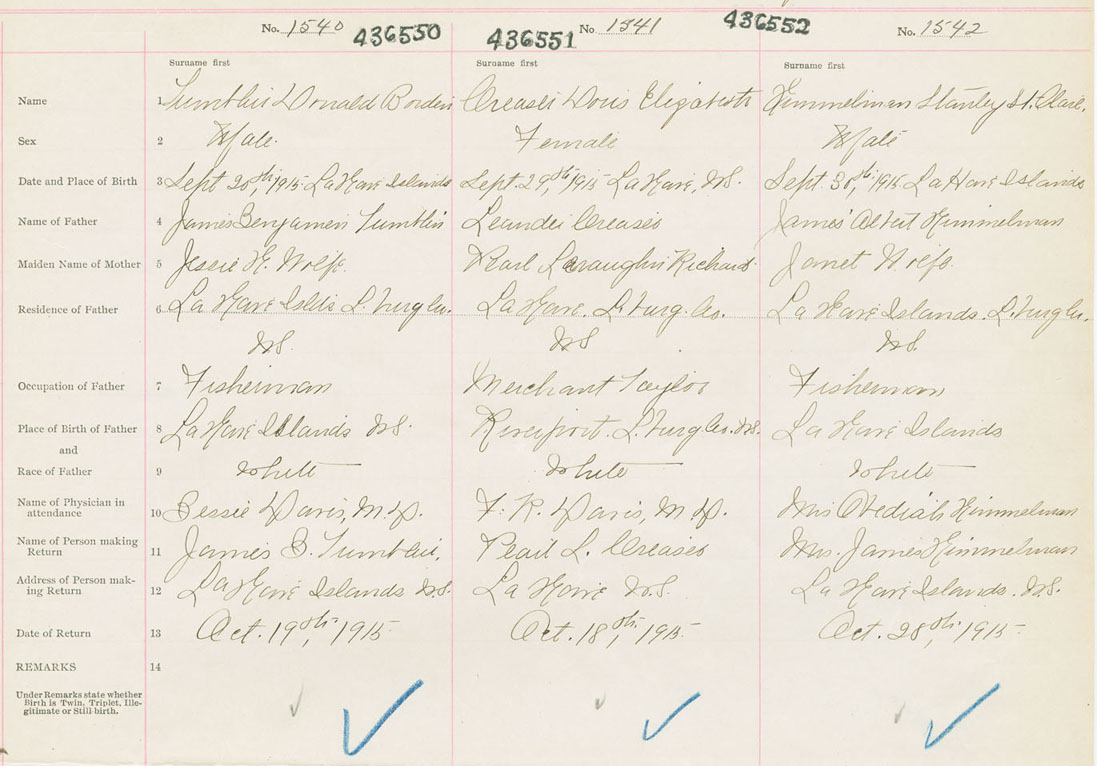 No. 1540 436550 436551 No 1541 436552 No. 1542
Surname first Surname first Surname first
Name 1 Tumblin Donald Borden Creaser Doris Elizabeth Himmelman Stanley St. Clair.
Sex 2 Male. Female Male
Date and Place of Birth 3 Sept 20th, 1915 LaHave Islands Sept. 29th, 1915 LaHave, N.S. Sept. 30th, 1915 LaHave Islands
Name of Father 4 James Benjamin Tumblin Leander Creaser James Albert Himmelman
Maiden Name of Mother 5 Jessie H. Wolfe. Pearl Richard Janet Wolfe.
Residence of Father 6 La Have Islds L'burg Co. La Have. L'burg. Co. La Have Islands. L'burg Co.
N.S. N.S N.S.
Occupation of Father 7 Fisherman Merchant Taylor Fisherman
Place of Birth of Father 8 La Have Islands N.S. Riverport. L'burg Co. N.S. La Have Islands
and
Race of Father 9 White White White
Name of Physician in
attendance 10 Bessie Davis, M.D. F. R. Davis, M.D. Mrs Obediah Himmelman
Name of Person making
Return 11 James B. Tumblin. Pearl L. Creaser Mrs. James Himmelman
Address of Person mak-
ing Return 12 La Have Islands N.S. La Have N.S. La Have Islands. N.S.
Date of Return 13 Oct. 19th, 1915 Oct. 18th, 1915 Oct. 28th, 1915
REMARKS 14
Under Remarks state whether
Birth is Twin, Triplet, Ille-
gitimate or Still-birth.